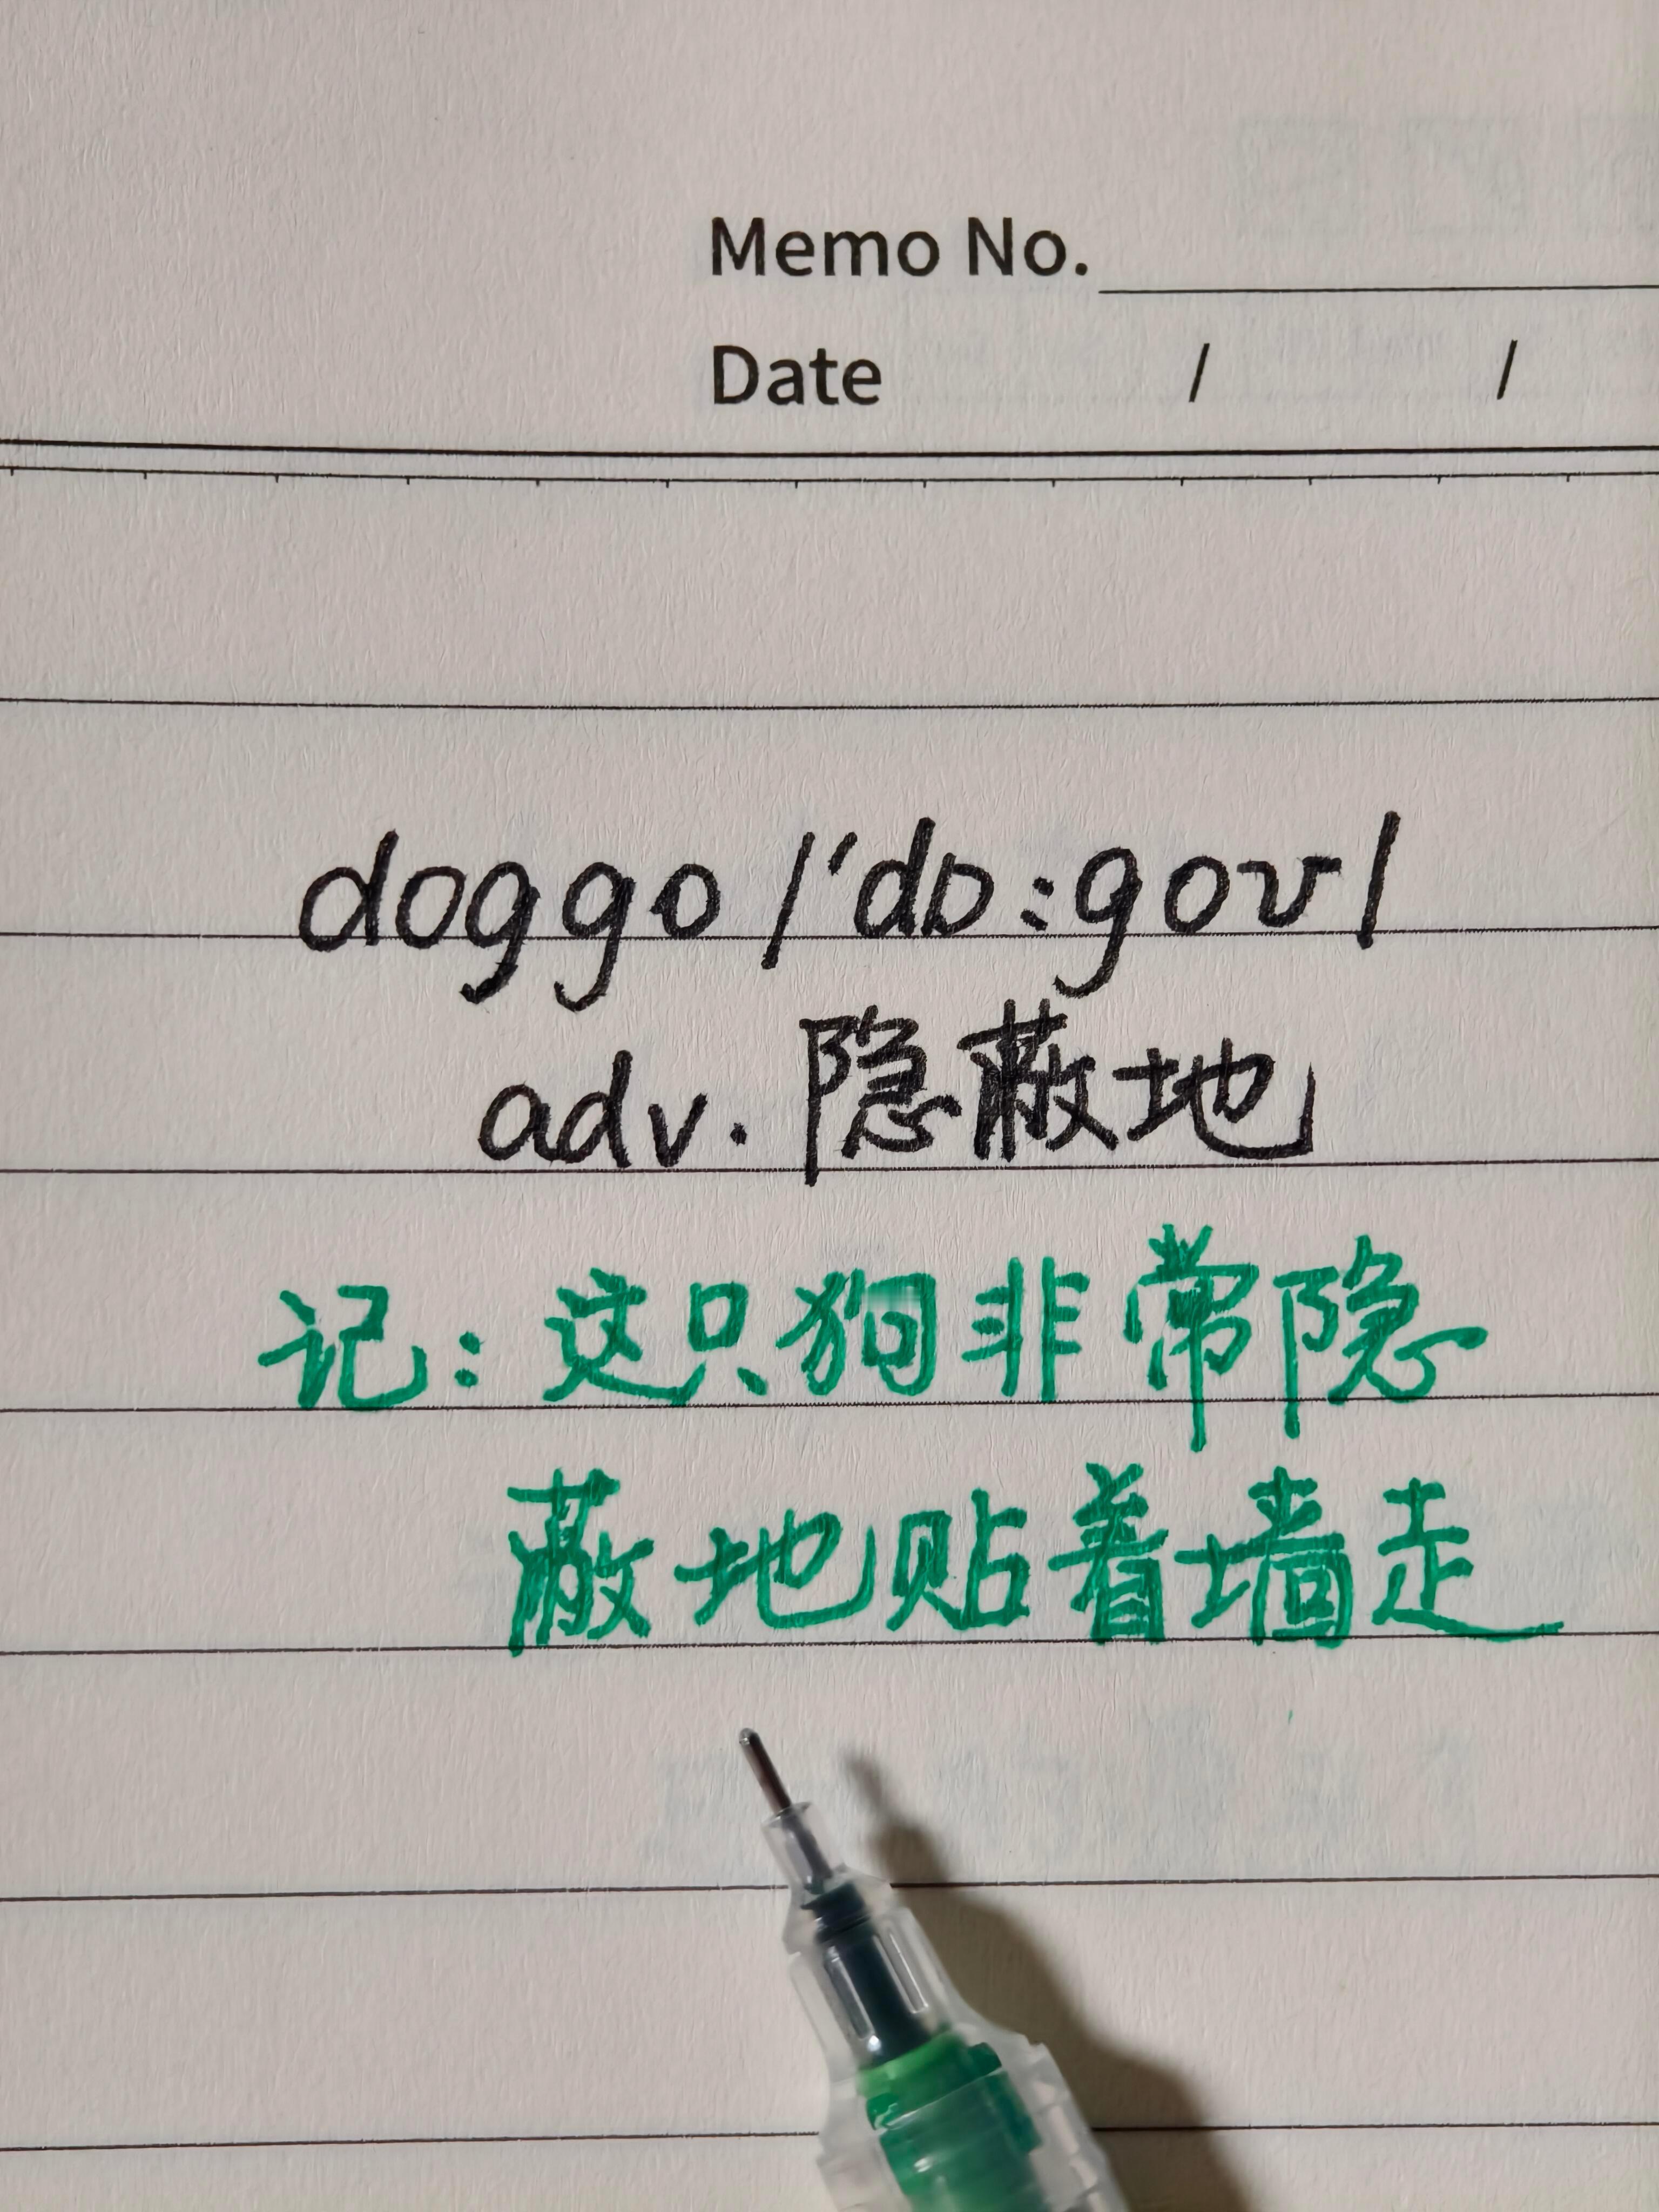 Memo No.
Date / /
doggo /'dɒ:gov/
adv. 隐蔽地
记：这只狗非常隐
蔽地贴着墙走